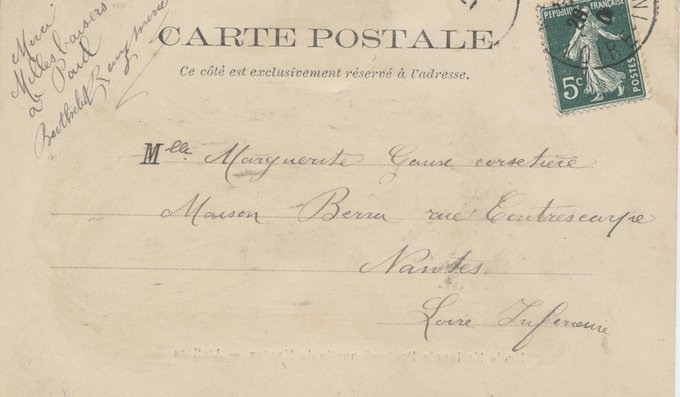 Merci
Milles baisers
à Paul
Berthelot Remy mine
CARTE POSTALE
Ce côté est exclusivement réservé à l'adresse.
RÉPUBLIQUE FRANÇAISE
5c
POSTES
Mlle Marguerite Gaux corsetière
Maison Berru rue Contrescarpe
Nantes
Loire Inférieure